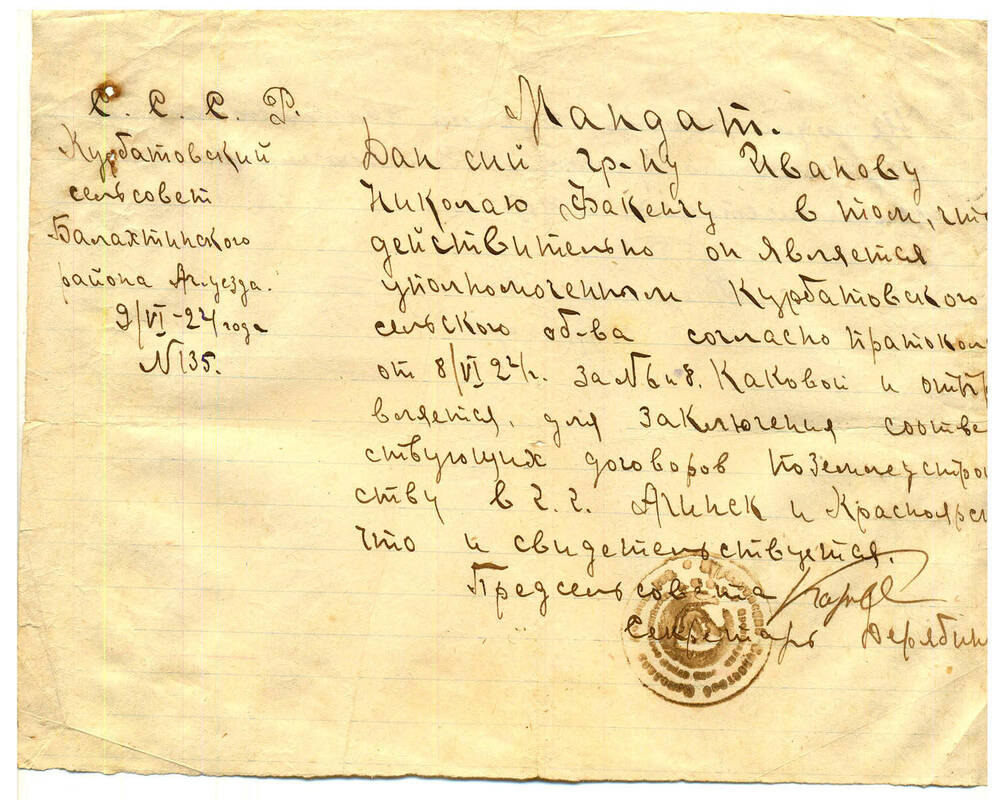 С. С. С. Р.
Курбатовский
сельсовет
Балахтинского
района Ач. уезда.
9/VI-24 года
№135.
Мандат.
Дан сий гр-ну Иванову
Николаю в том, что
действительно он является
уполномоченным Курбатовского
сельского об-ва согласно протокол
от 8/VI 24 г. за № Каковой и отпр
вляется, для заключения соотве
ствующих договоров по землеустрой
ству в г. г. Ачинск и Красноярск
что и свидетельствуется.
Предсельсовета
Секретарь Дерябин